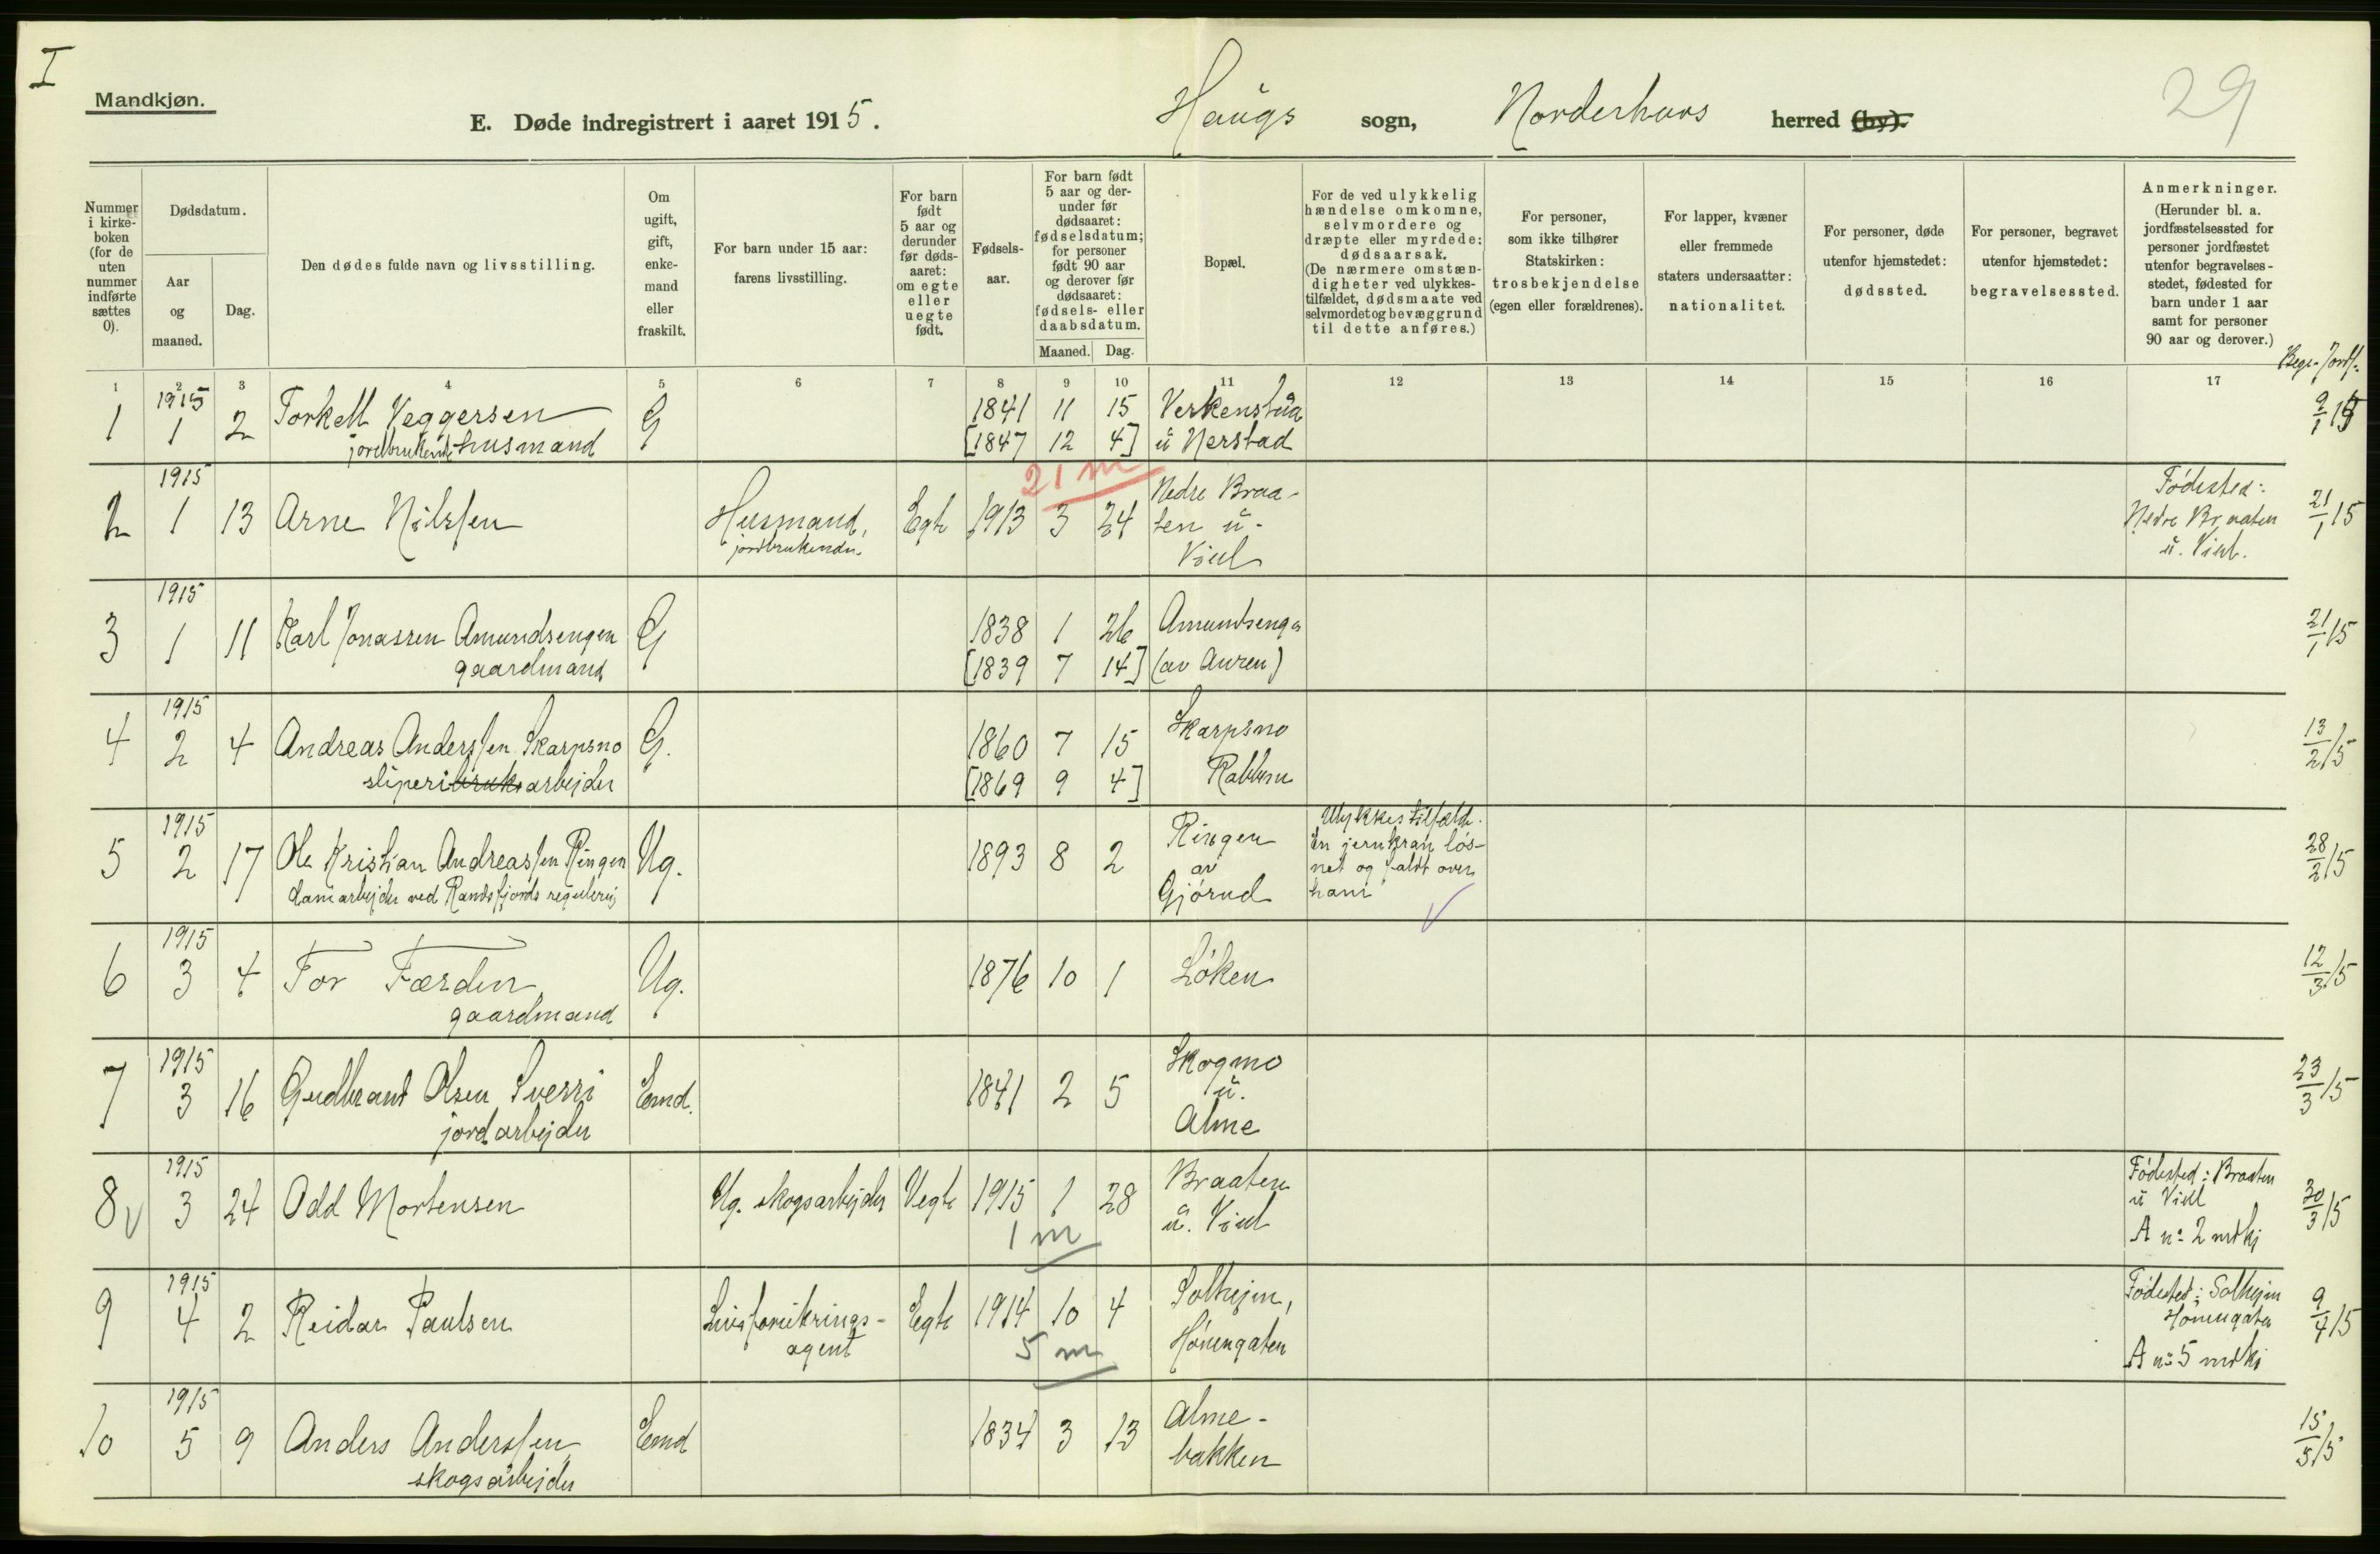 I
Mandkjøn.
E. Døde indregistrert i aaret 1915.
Haugs sogn, Norderhovs herred (by).
29
Nummer i kirke-boken (for de uten nummer indførte sættes 0).
Dødsdatum.
Aar og maaned.
Dag.
Den dødes fulde navn og livsstilling.
Om ugift, gift, enke-mand eller fraskilt.
For barn under 15 aar: farens livsstilling.
For barn født 5 aar og derunder før døds-aaret: om egte eller uegte født.
Fødsels-aar.
For barn født 5 aar og der-under før dødsaaret: fødselsdatum; for personer født 90 aar og derover før dødsaaret: fødsels- eller daabsdatum.
Maaned. Dag.
Bopæl.
For de ved ulykkelig hændelse omkomne, selvmordere og dræpte eller myrdede: dødsaarsak. (De nærmere omstæn-digheter ved ulykkes-tilfældet, dødsmaate ved selvmordet og bevæggrund til dette anføres.)
For personer, som ikke tilhører Statskirken: trosbekjendelse (egen eller forældrenes).
For lapper, kvæner eller fremmede staters undersaatter: nationalitet.
For personer, døde utenfor hjemstedet: dødssted.
For personer, begravet utenfor hjemstedet: begravelsessted.
Anmerkninger. (Herunder bl. a. jordfæstelsessted for personer jordfæstet utenfor begravelses-stedet, fødested for barn under 1 aar samt for personer 90 aar og derover.)
Begr. Jordf.
1 2 3 4 5 6 7 8 9 10 11 12 13 14 15 16 17
1 1915 1 2 Torkell Veggersen G 1841 11 15 Verkenstua 9/1 15
jordbrukende husmand [1847 12 4] u Nerstad
21 m
2 1915 1 13 Arne Nilssen Husmand, Egte 1913 3 24 Nedre Braa- Fødested: 21/1 15
jordbrukende. ten u. Nedre Braaten
Viul u. Viul.
3 1915 1 11 Karl Jonassen Amundsengen G 1838 1 26 Amundsengen 21/1 15
gaardmand [1839 7 14] (av Auren)
4 1915 2 4 Andreas Anderssen Skarpsno G. 1860 7 15 Skarpsno 13/2 15
sliperibruksarbejder [1869 9 4]
5 1915 2 17 Ole Kristian Andreassen Ringen Ug. 1893 8 2 Ringen Ulykkestilfælde. 28/2 15
damarbejder ved Randsfjords regulering av En jernkran løs-
Gjørud net og faldt over
ham
6 1915 3 4 Tor Færden Ug. 1876 10 1 Løken 12/3 15
gaardmand
7 1915 3 16 Gudbrand Olsen Sverri Emd. 1841 2 5 Skogmo 23/3 15
jordarbejder u.
Alme
8 1915 3 24 Odd Mortensen Ug. skogsarbejder Uegte 1915 1 28 Braaten Fødested: Braaten 30/3 15
1 m u. Viul u Viul
A no 2 mdkj
9 1915 4 2 Reidar Paulsen Livsforsikrings- Egte 1914 10 4 Solhejm, Fødested: Solhejm 9/4 15
agent 5 m Hønengaten Hønengaten
A no 5 mdkj
10 1915 5 9 Anders Anderssen Emd 1834 3 13 Alme- 15/5 15
skogsarbejder bakken